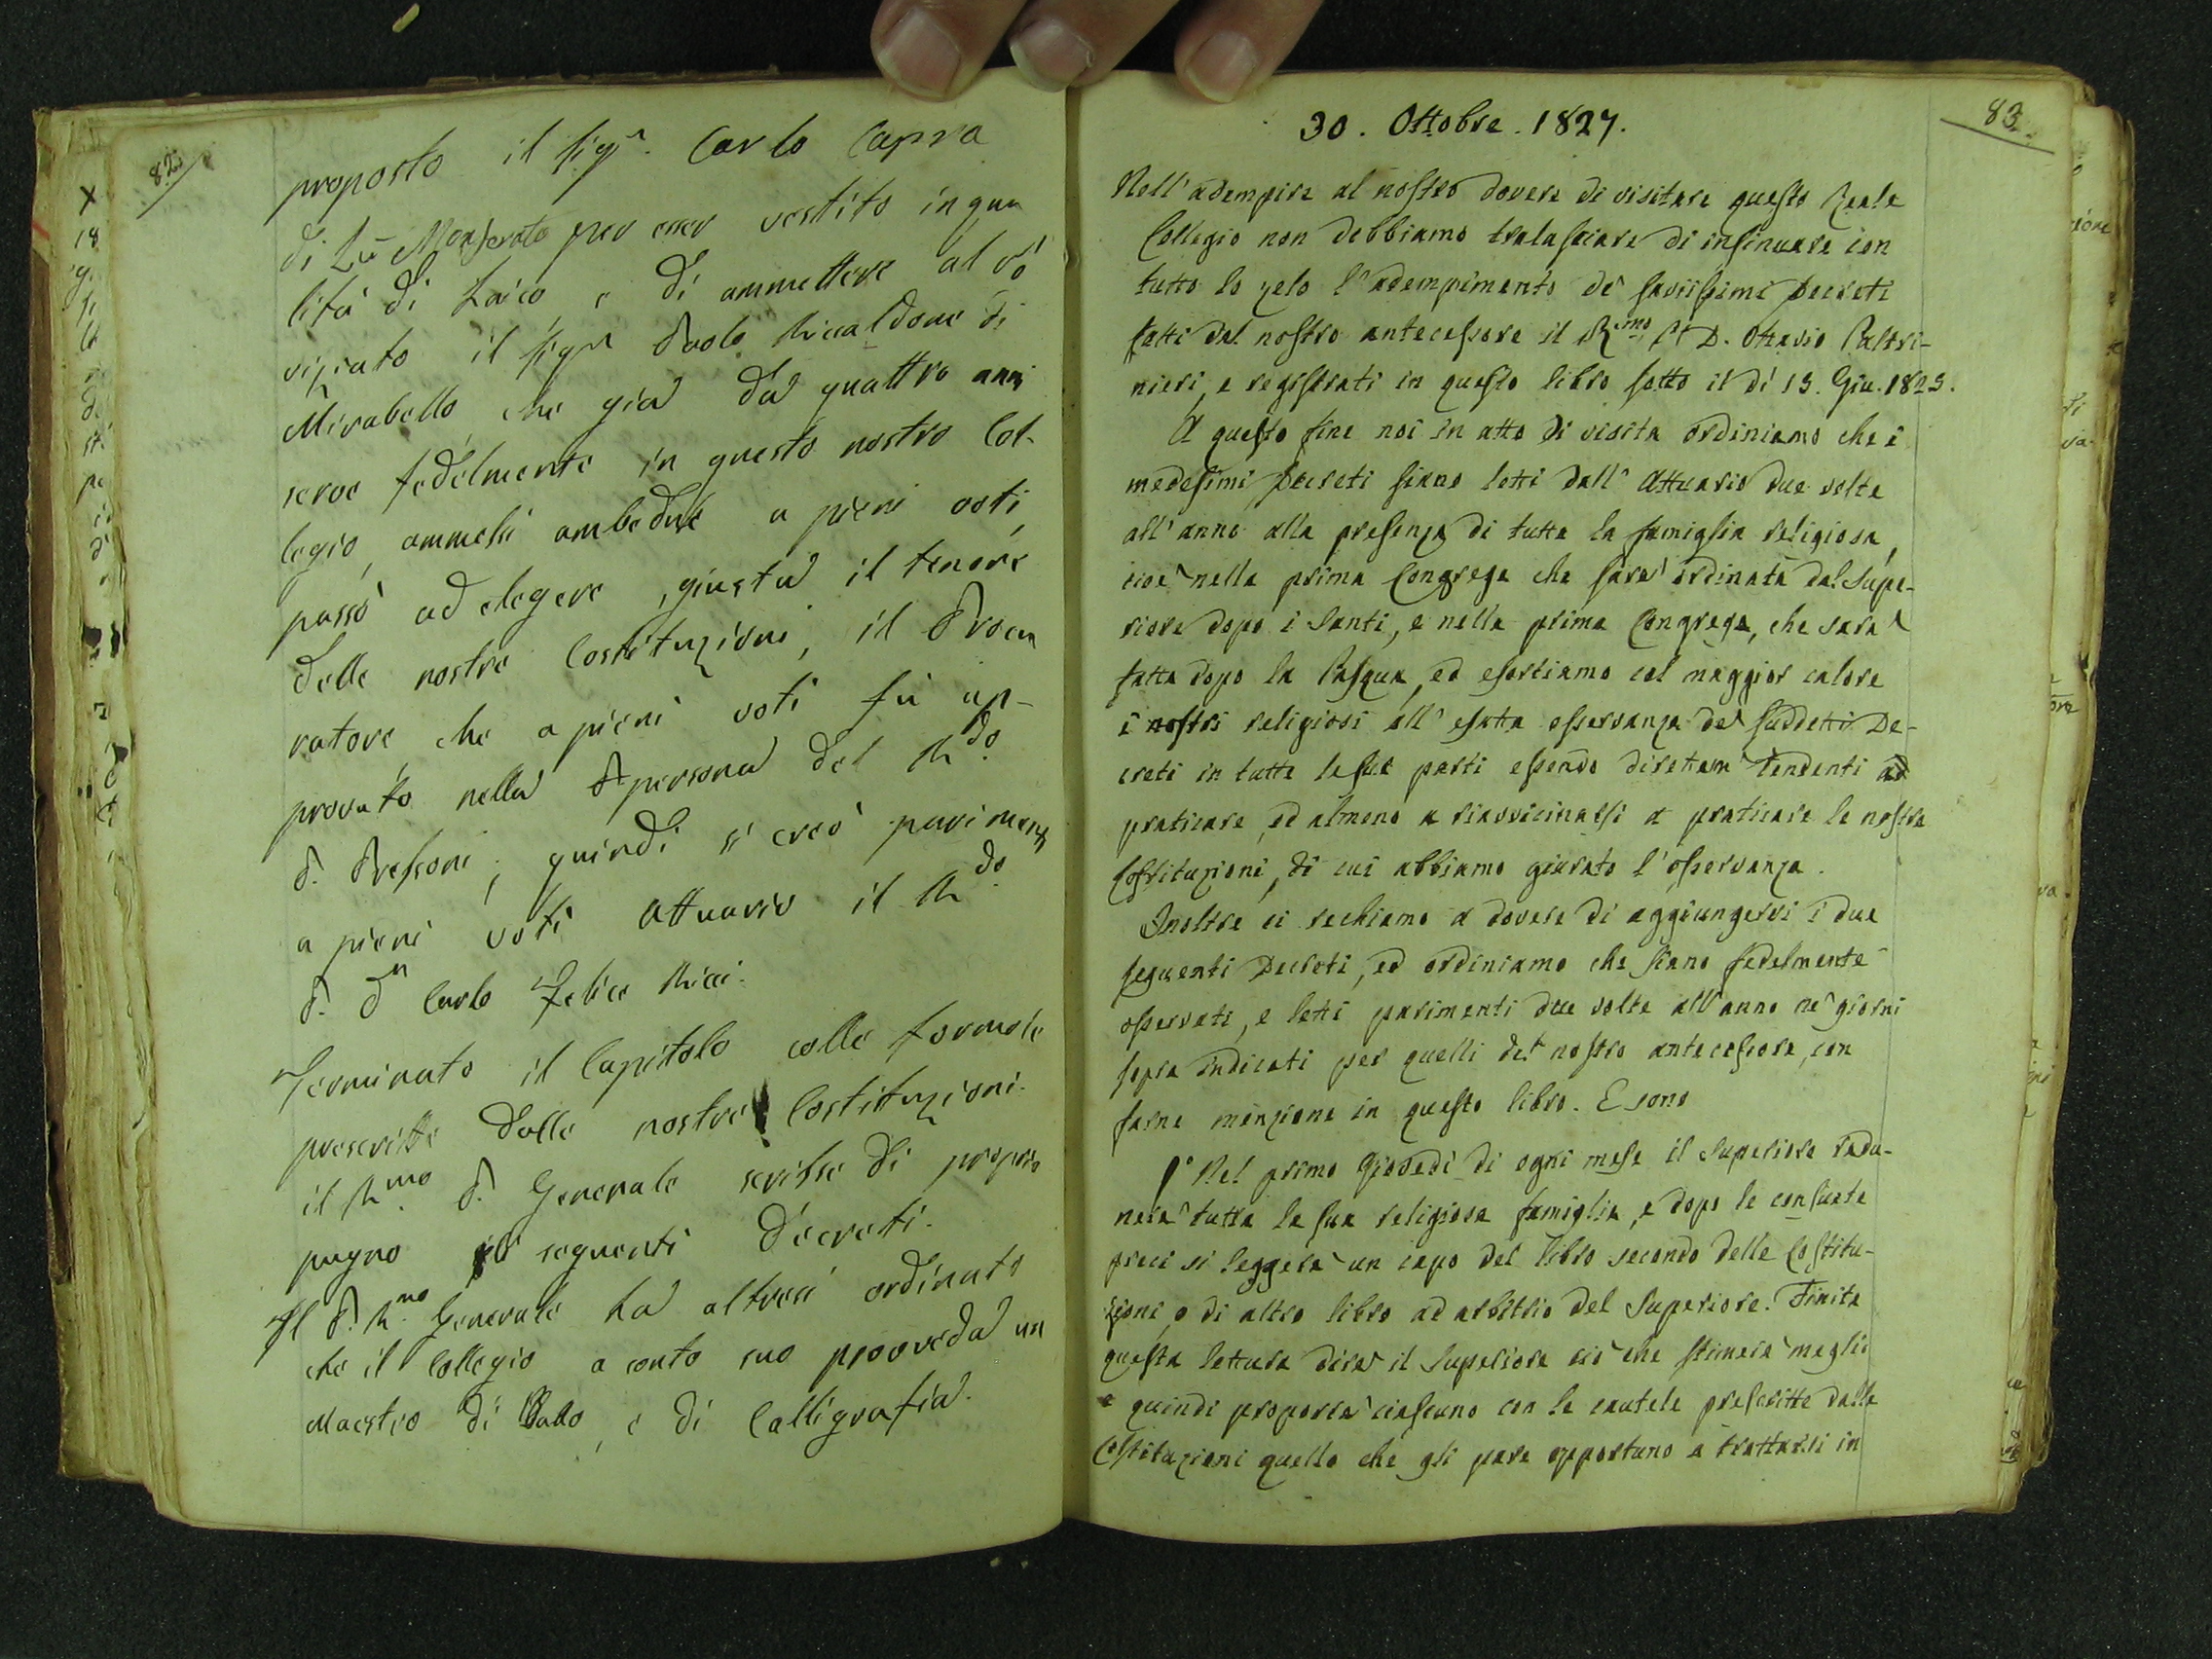 82.
proposto il Sigr. Carlo Capra
di Lù Monferato per esser vestito in qua
lità di Laico, e di ammettere al vo
viziato il Sigr Paolo Ricaldone di
Mirabello che già da quattro anni
serve fedelmente in questo nostro Col-
legio, ammessi ambedue a pieni voti,
passò ad elegere, giusta il tenore
delle nostre Costituzioni, il Procu
ratore, che a pieni voti fu ap-
provato nella persona del Rdo.
P. Pressoni; quindi si creò pariment
a pieni voti Attuario il Rdo.
P. Dn Carlo Felice Ricci.
Terminato il Capitolo colle formole
prescritte dalle nostre Costituzioni.
il Rmo. P. Generale scrisse di proprio
pugno i seguenti Decreti.
Il P. Rmo. Generale ha altresì ordinato
che il Collegio a conto suo provveda un
Maestro di Ballo, e di Calligrafia.
83.
30. Ottobre. 1827.
Nell' adempire al nostro dovere di visitare questo Reale
Collegio non dobbiamo tralasciare di insinuare con
tutto lo zelo l'adempimento de' saviissimi Decreti
fatti dal nostro antecessore il Rmo P. D. Ottavio Paltri-
nieri, e registrati in questo libro sotto il dì 13. Giu. 1823.
A questo fine noi in atto di visita ordiniamo che i
medesimi Decreti siano letti dall' Attuario due volte
all' anno alla presenza di tutta la famiglia religiosa,
cioè nella prima Congrega che sarà ordinata dal Supe-
riore dopo i Santi, e nella prima Congrega, che sarà
fatta dopo la Pasqua, ed esortiamo col maggior calore
i nostri religiosi all' esatta osservanza de' suddetti De-
creti in tutte le sue parti essendo direttam. tendenti ad
praticare, ed almeno a riavvicinarsi a praticare le nostre
Costituzioni, di cui abbiamo giurato l'osservanza.
Inoltre ci rechiamo a dovere di aggiungervi i due
seguenti Decreti, ed ordiniamo che siano fedelmente
osservati, e letti parimenti due volte all' anno ne' giorni
sopra indicati per quelli del nostro antecessore, con
farne menzione in questo libro. E sono
1° Nel primo Giovedì di ogni mese il Superiore radu-
nerà tutta la sua religiosa famiglia, e dopo le consuete
preci si leggerà un capo del libro secondo delle Costitu-
zioni, o di altro libro ad arbitrio del Superiore. Finita
questa lettura dirà il Superiore ciò che stimerà meglio
e quindi proporrà ciascuno con le cautele prescritte dalle
Costituzioni quello che gli pare opportuno a trattarsi in